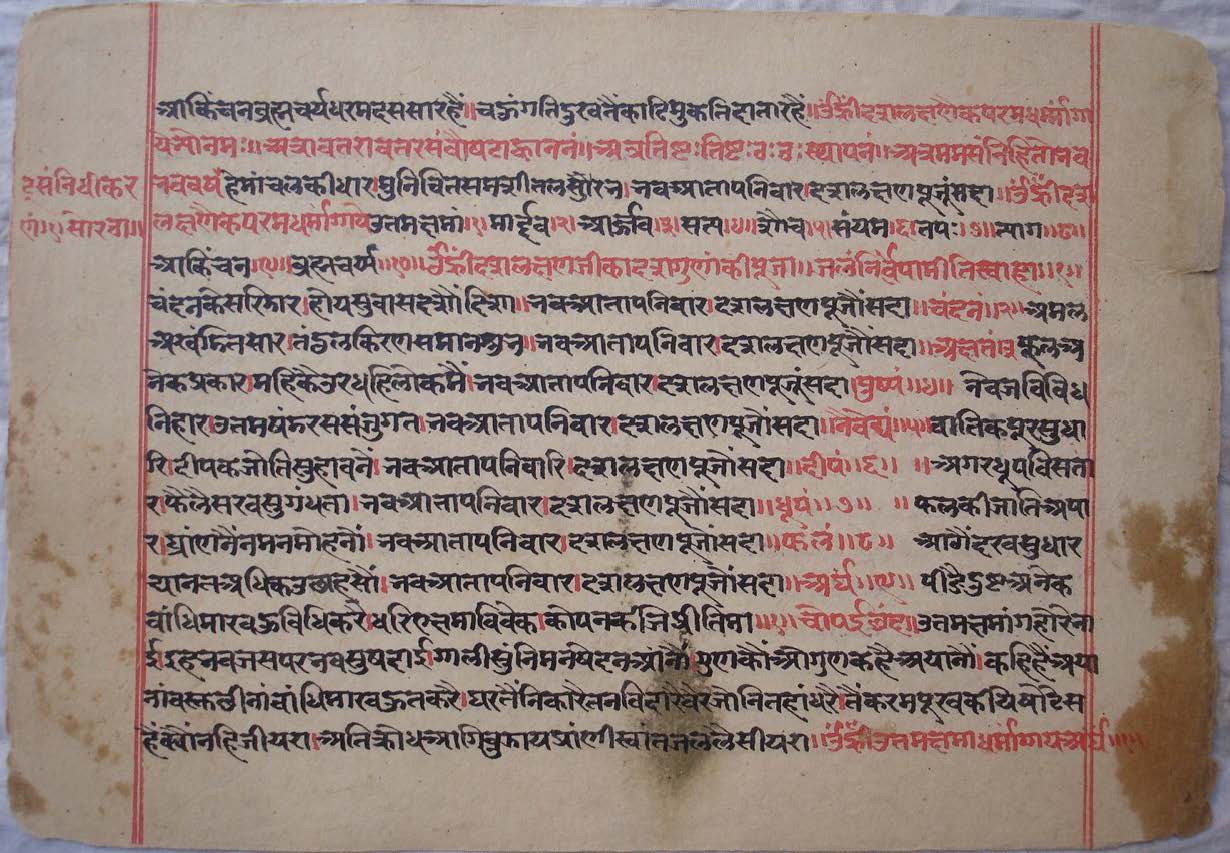 आकिंचनब्रह्मचर्यधरमदससारहैं॥चऊंगतिदुखतैंकाटिमुकतिदातारहैं॥ॐह्रींदशलक्षणैकपरमधर्म्मांगा
यश्रीनमः॥अत्रावतरावतरसंवौषटाह्वाननं॥अत्रतिष्टःतिष्टःठःठःस्थापनं॥अत्रममसंनिहितोभव
भववषटं हेमांचलकीधार।मुनिचितसमशीतलसुरभ।भवआतापनिवार।दशलक्षणपूजूंसदा॥ॐह्रींदश
लक्षणैकपरमधर्म्मांगायेउत्तमक्षमां।१।मार्द्दव।२।आर्ज्जव।३।सत्य।४।शौच।५।संयम।६।तपः।७।त्याग।८।
आकिंचन।९।ब्रह्मचर्य।१०।ॐह्रींदशलक्षणजीकादशगुणांकीपूजा॥जलंनिर्वपामीतिस्वाहा॥१॥
चंदनकेसरिगार।होयसुवासदशौंदिशा॥भवआतापनिवार।दशलक्षणपूजौंसदा॥चंदनं॥२॥अमल
अखंडितसार।तंदुलकिरणसमानशुभ॥भवआतापनिवार।दशलक्षणपूजौंसदा॥अक्षतं॥३॥फूलअ
नेकप्रकार।महिकैउरधहिलोकमैं।भवआतापनिवार।दशलक्षणपूजूंसदा।पुष्पं॥४॥ नेवजविविध
निहार।उत्तमषंटरससंजुगत।भवआतापनिवार।दशलक्षणपूजौंसदा॥नैवेद्यं॥५॥वातिकपूरसुधा
रि।दीपकजोतिसुहावनें।भवआतापनिवारि।दशलक्षणपूजौंसदा॥दीपं॥६॥ ॥अगरधूपविसता
र।फैलैसरवसुगधता।भवआतापनिवार।दशलक्षणपूजौंसदा॥धूपं॥७॥ ॥फलकीजातिअपा
र।घ्रांणनैंनमनमोहनों।भवआतापनिवार।दशलक्षणपूजौंसदा॥फलं॥८॥ आठौंदरवसुधार
द्यानतअधिकउछाहसौं।भवआतापनिवार।दशलक्षणपूजौंसदा॥अर्घं॥९॥ पीडैंदुष्टअनेक
वांधिमारवऊविधिकरै।धरिएक्षमाविवेक।कोपनकीजेप्रीतिमा॥१॥चौपईछंद॥उत्तमक्षमांगहौरेभा
ईइहभवजसपरभवसुषदाई।गालीसुंनिमनषेदनआंनौं।गुणकौंऔगुणकहैअयानौं।कहिहैंअया
नांवस्तछीनांवांधिमारवऊतकरै।घरतैंनिकारैतनविदारैवैरजोनितहांधरै।तैंकरमपूरवकीयेषोटेस
हैंक्यौंनहिजीयरा।अतिक्रोधअगिनिबुझायप्रांणीस्वांतजललैसीयरा॥ॐह्रींउत्तमक्षमाधर्मांगायअर्घं॥१॥